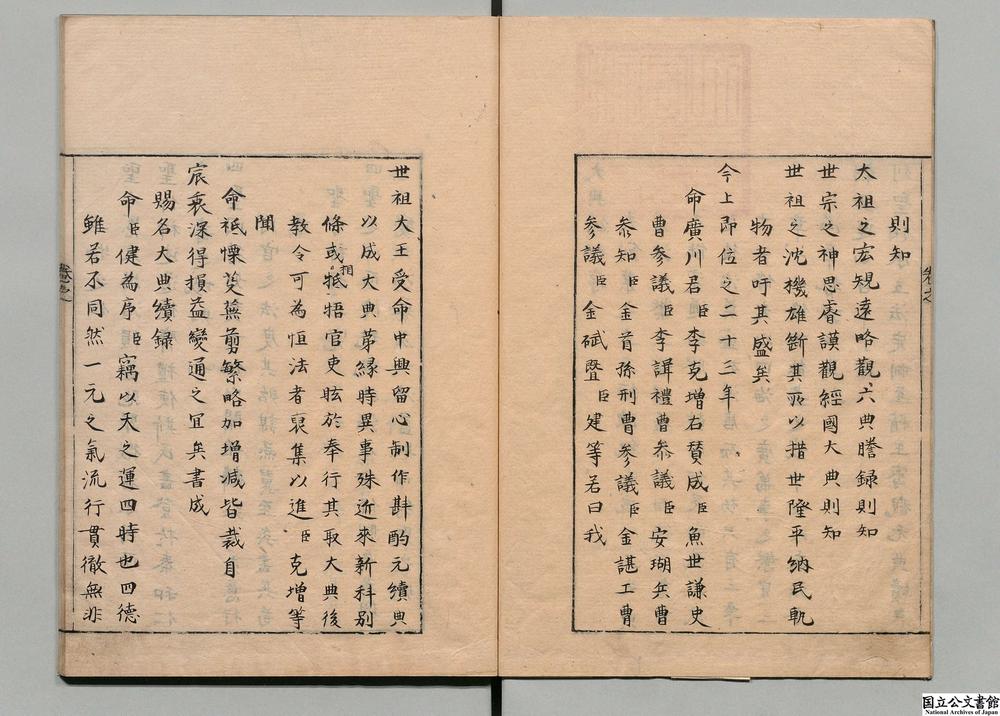 則知
太祖之宏規遠略觀六典謄録則知
世宗之神思睿謨觀經國大典則知
世祖之沈機雄斷其所以措世隆平納民軌
物者吁其盛矣
今上即位之二十三年
命廣川君臣李克增右賛成臣魚世謙史
曹參議臣李諿禮曹參議臣安瑚兵曹
參知臣金首孫刑曹參議臣金諶工曹
參議臣金碔曁臣建等若曰我
世祖大王受命中興留心制作斟酌元續典
以成大典第縁時異事殊近來新科別
條或相牴牾官吏眩於奉行其取大典後
教令可為恒法者裒集以進臣克增等
聞
命祗懍芟蕪剪繁略加增減皆裁自
宸衷深得損益變通之宜矣書成
賜名大典續録
命臣健為序臣竊以天之運四時也四德
雖若不同然一元之氣流行貫徹無非
國立公文書館
National Archives of Japan